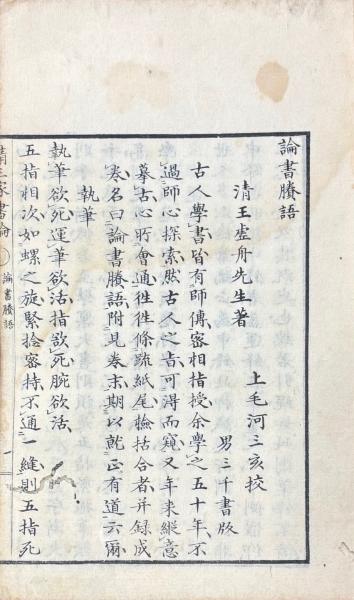 論書賸語
清王虛舟先生著
上毛河三亥挍
男三千書版
古人學書皆有師傳密相指授余學之五十年不
過師心探索然古人之㫖可得而窺又年来縱意
摹古心所會通徃徃條疏紙尾撿括合者并録成
卷名曰論書賸語附見卷末期以就正有道云爾
執筆
執筆欲死運筆欲活指欲死腕欲活
五指相次如螺之旋緊捻密持不通一縫則五指死
清三家書論
論書賸語
一